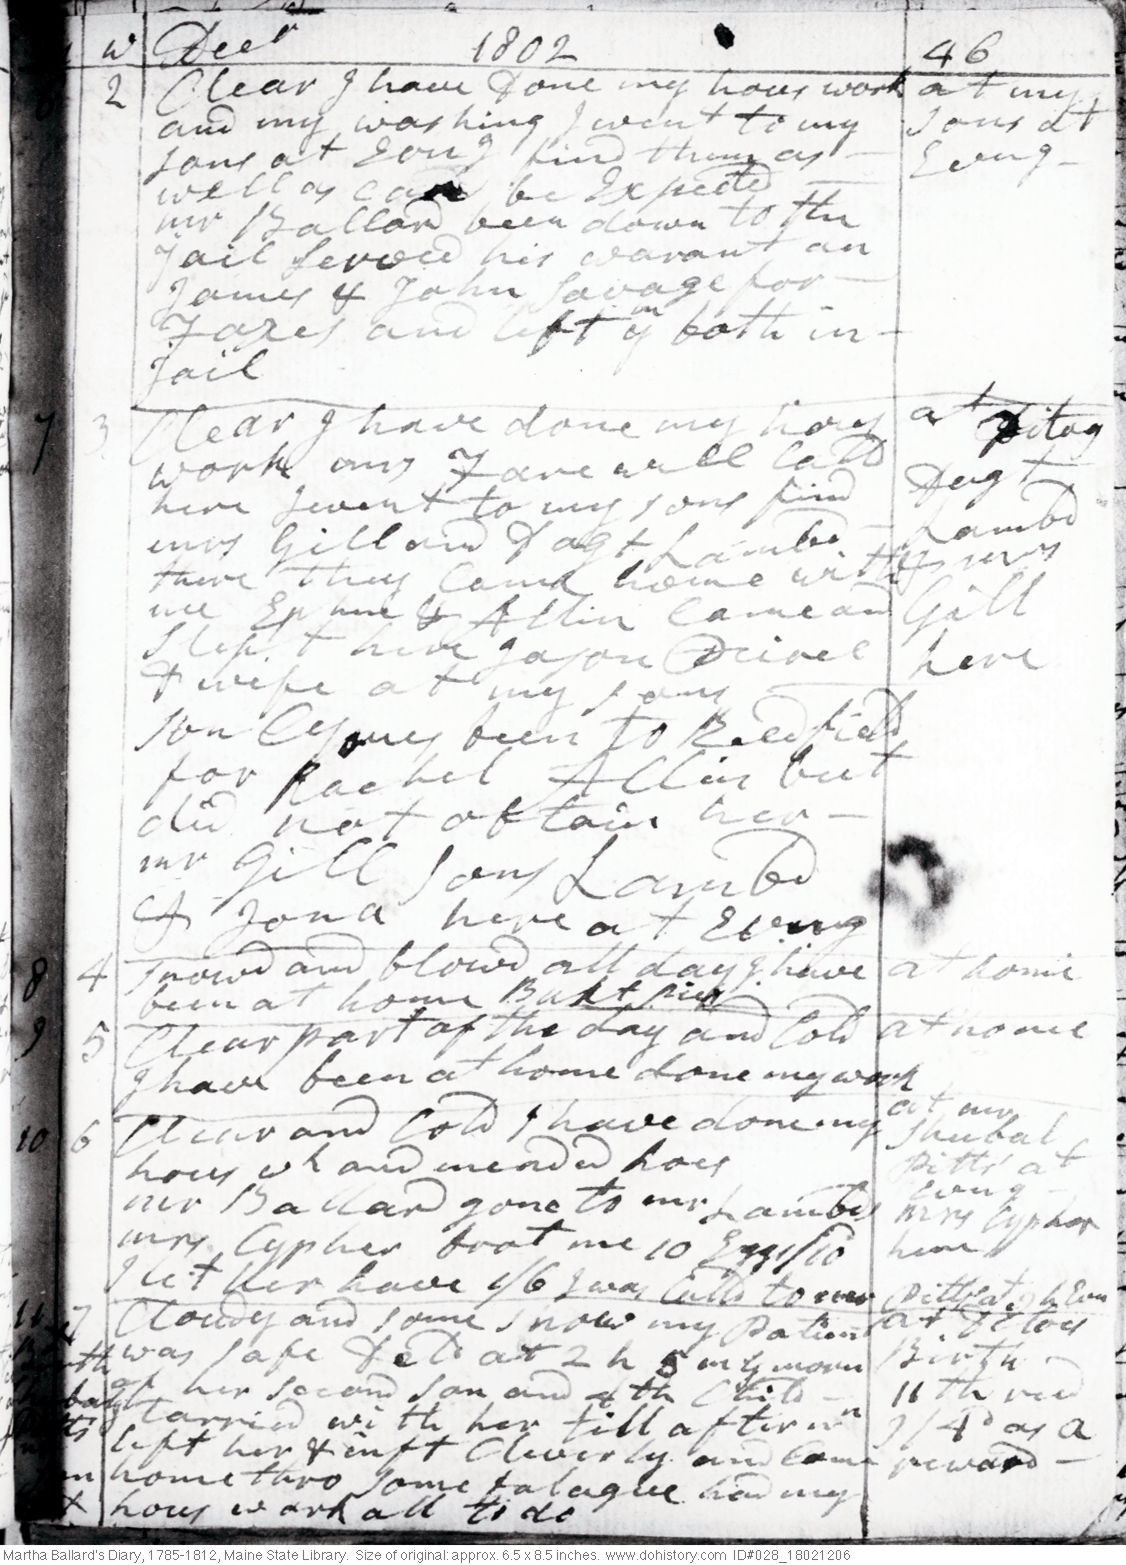 w Decr 1802 46
6 2 Clear I have Done my hous work at my
and my washing I went to my sons at
sons at Evng find them as – Evng –
well as can be Expected –
mr Ballard been down to the
Jail Served his warant on
James & John Savage for –
Taxes and left ym both in –
Jail
7 3 Clear I have done my hous at ditog
work mrs Farewell Calld Dagt
here I went to my sons find – Lambd
mrs Gill and Dagt Lambd & mrs
there they came home with Gill
me Ephm & Allin came and here
slept here Jason
& wife at my sons –
son Cyrus been to Readfield
for Rachel Allin but
did not obtain her –
mr Gill sons Lambd
& Jona here at Evng
8 4 snowd and blowd all day I have at home
been at home Bakt pies
9 5 Clear part of the day and Cold at home
I have been at home done my work
10 6 Clear and Cold I have done my at mr
hous wk and mended hoes Shubal
mr Ballard gone to mr Lambds Pitts at
mrs Cypher brot me 10 Eggs /10 Evng –
I let her have 1/6 I was Calld to mr mrs Cypher
here
11 7 Cloudy and some snow my Patient Pitts at 7 h Evn
was safe Deld at 2 h 5 m y morn at Ditoes
of her second son and 4th Child – Birth –
I tarried with her till after nn 11th red
left her & inft Cleverly and came 9/4d as a
home thro some fatague had my reward –
hous work all to do